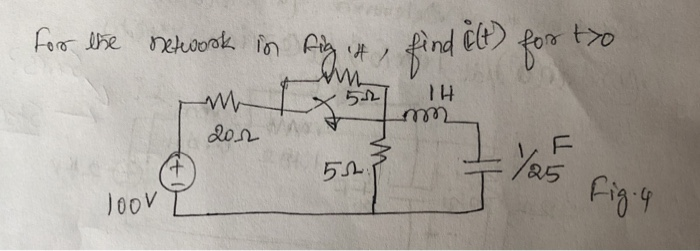 For the network in fig.4, find i(t) for t>0
5Ω
1H
20Ω
+
5Ω
1/25 F
100V
Fig.4